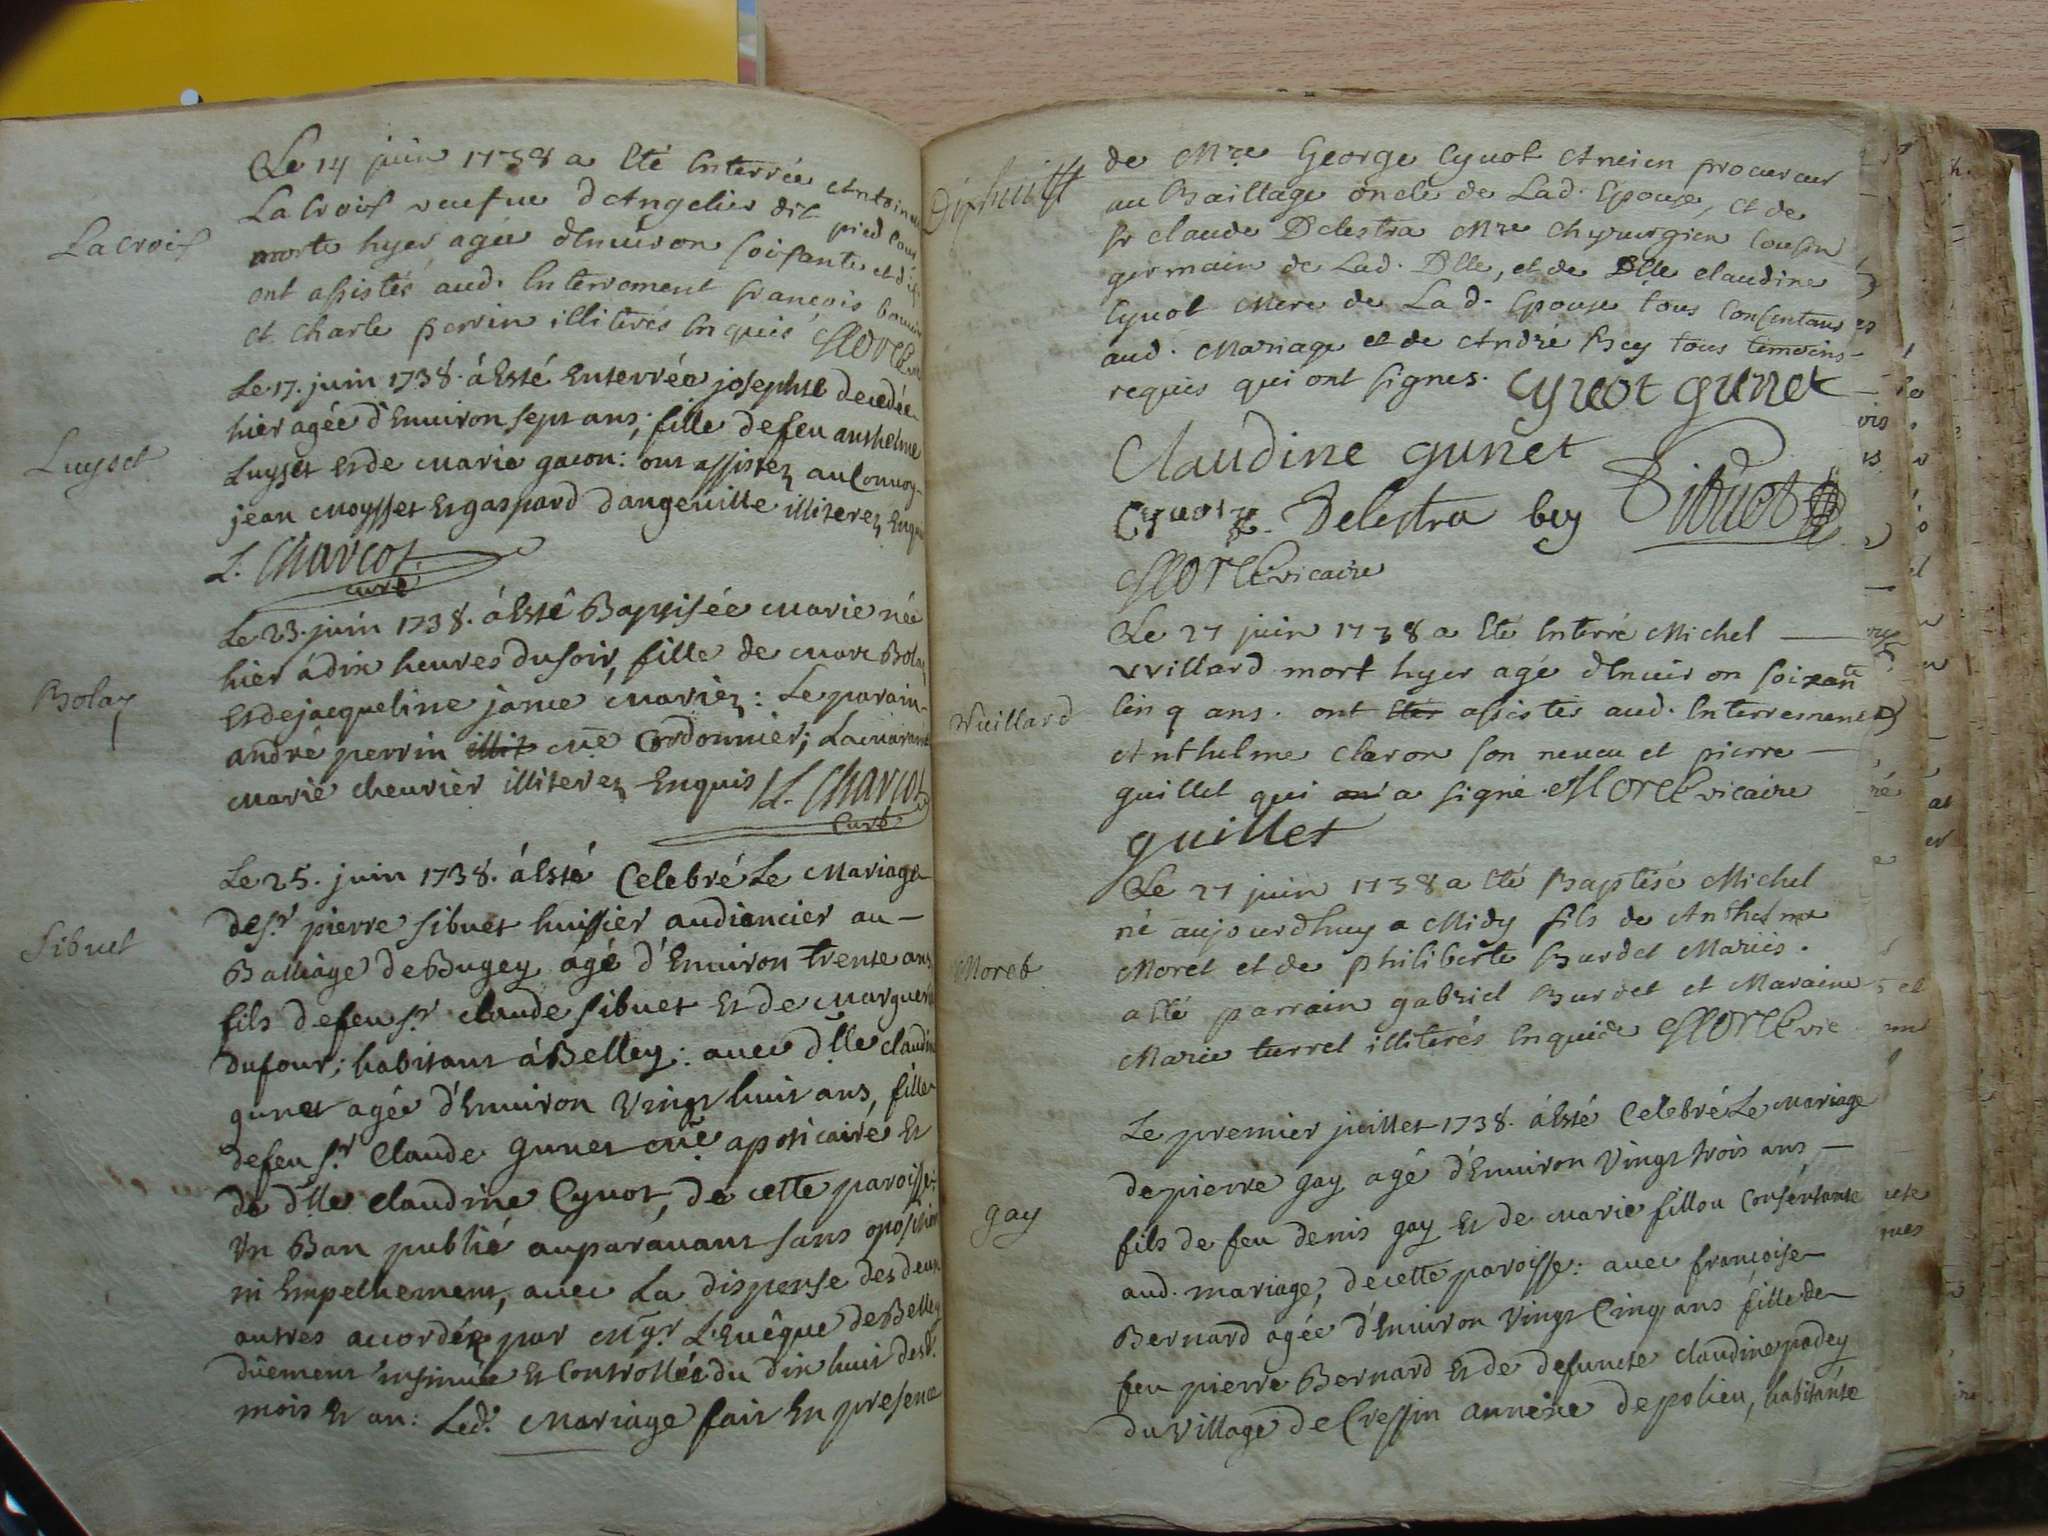 Lacroix
Le 14 juin 1738 a Eté Enterrée Antoinette
Lacroix veufue d'Angelier dit pied
morte hyer agée d'Enuiron soixante et dix
ont assistés aud. Enterrement françois
et Charle perrin illiterés Enquis Morel
Luyset
Le 17. juin 1738. á Esté Enterrée josephte decedée
hier agée d'Enuiron sept ans; fille de feu anthelme
Luyset Et de marie gacon: ont assistez au Conuoy
jean moysset Et gaspard dangeuille illiterez Enquis
L. Charcot
curé
Bolay
Le 23. juin 1738. á Esté Baptisée marie née
hier á dix heures du soir, fille de marc Bolay
Et de jacqueline jame mariez: Le parain
andré perrin illit me Cordonnier; La maraine
marie cheurier illiterez Enquis L. Charcot
Curé
Sibuet
Le 25. juin 1738. á Esté Celebré Le mariage
de sr. pierre sibuet huissier audiancier au
Balliage de Bugey agé d'Enuiron trente ans
fils de feu sr. claude sibuet Et de marguerite
dufour; habitant á Belley: auec dlle claudine
gunet agée d'Enuiron Vingt huit ans, fille
de feu sr. Claude gunet me apoticaire Et
de dlle claudine Cynot, de cette paroisse:
Vn Ban publié auparauant sans oposition
ni Empechement, auec La dispense des deux
autres accordée par Mgr. L'Euêque de Belley
düement insinuée Et Controllée du dix huit desd.
mois Et an: Led. mariage fait En presence
Dixhuit
de Mre George Cynot Ancien procureur
au Baillage oncle de Lad. Epouse, et de
sr claude Delestra Mre Chyrurgien Cousin
germain de Lad. Dlle, et de Dlle claudine
Cynot Mere de Lad. Epouse tous Consentans
aud. Mariage et de André Bey tous temoins
requis qui ont signes. Cynot gunet
Claudine gunet
Cynot Delestra bey Sibuet
Morel vicaire
Vuillard
Le 27 juin 1738 a Eté Enterré Michel
Vvillard mort hyer agé d'Enuiron soixante
Cinq ans. ont Etés assistés aud. Enterrement
Anthelme Claron son neueu et pierre
guillet qui a signé. Morel vicaire
guillet
Moret
Le 27 juin 1738 a Eté Baptisé Michel
né aujourdhuy a Midy fils de Anthelme
Moret et de philiberte Burdet Mariés.
a Eté parrain gabriel Burdet et Maraine
Marie turrel illiterés Enquis Morel vic
gay
Le premier juillet 1738. á Esté Celebré Le mariage
de pierre gay agé d'Enuiron Vingt trois ans
fils de feu denis gay Et de marie fillou Consentante
aud. mariage, de cette paroisse: auec françoise
Bernard agée d'Enuiron Vingt Cinq ans fille de
feu pierre Bernard Et de defuncte claudine padey
du Village de Cressin annexe de polieu, habitante